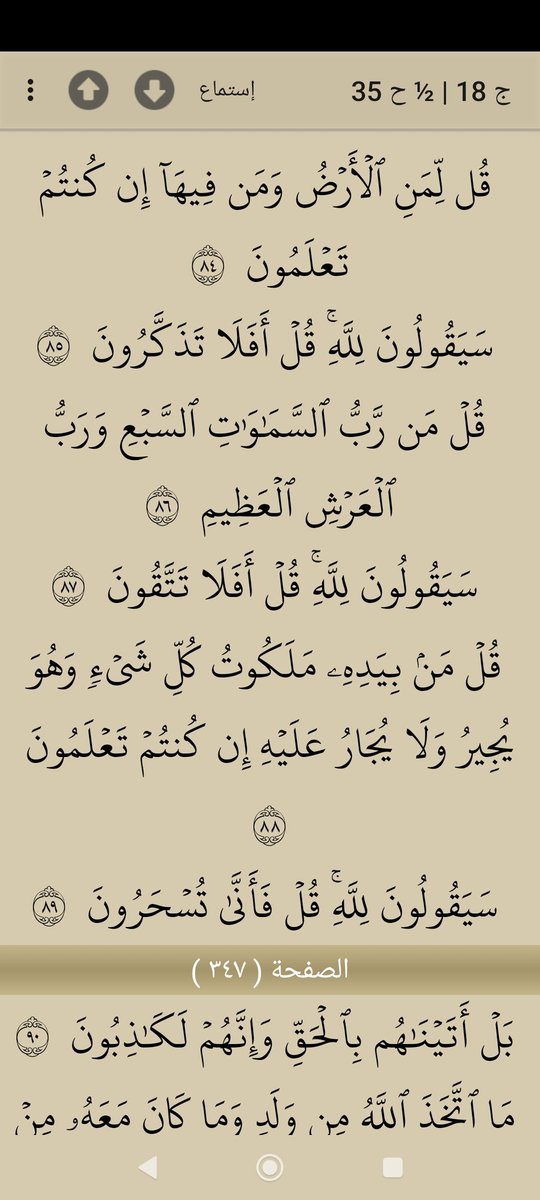 ج 18 | ½ ح 35 إستماع
قُل لِّمَنِ ٱلۡأَرۡضُ وَمَن فِيهَآ إِن كُنتُمۡ
تَعۡلَمُونَ ٨٤
سَيَقُولُونَ لِلَّهِۚ قُلۡ أَفَلَا تَذَكَّرُونَ ٨٥
قُلۡ مَن رَّبُّ ٱلسَّمَٰوَٰتِ ٱلسَّبۡعِ وَرَبُّ
ٱلۡعَرۡشِ ٱلۡعَظِيمِ ٨٦
سَيَقُولُونَ لِلَّهِۚ قُلۡ أَفَلَا تَتَّقُونَ ٨٧
قُلۡ مَنۢ بِيَدِهِۦ مَلَكُوتُ كُلِّ شَيۡءٖ وَهُوَ
يُجِيرُ وَلَا يُجَارُ عَلَيۡهِ إِن كُنتُمۡ تَعۡلَمُونَ
٨٨
سَيَقُولُونَ لِلَّهِۚ قُلۡ فَأَنَّىٰ تُسۡحَرُونَ ٨٩
الصفحة ( ٣٤٧ )
بَلۡ أَتَيۡنَٰهُم بِٱلۡحَقِّ وَإِنَّهُمۡ لَكَٰذِبُونَ ٩٠
مَا ٱتَّخَذَ ٱللَّهُ مِن وَلَدٖ وَمَا كَانَ مَعَهُۥ مِنۡ